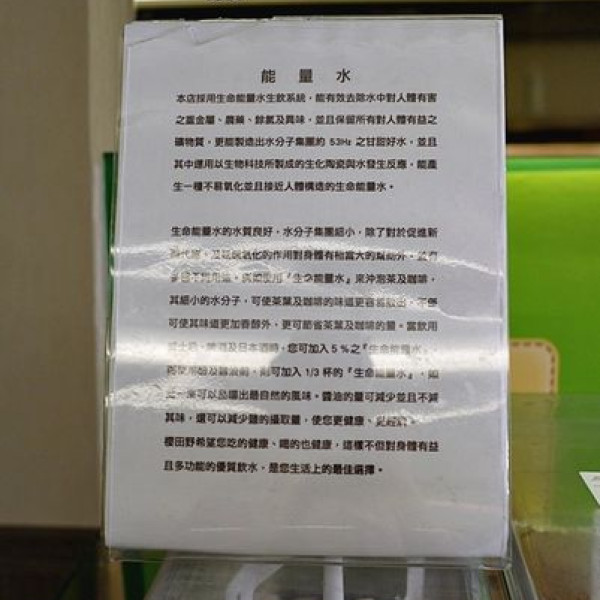 能 量 水
本店採用生命能量水生飲系統，能有效去除水中對人體有害
之重金屬、農藥、餘氯及異味，並且保留所有對人體有益之
礦物質，更能製造出水分子集團約 53Hz 之甘甜好水，並且
其中運用以生物科技所製成的生化陶瓷與水發生反應，能產
生一種不易氧化並且接近人體構造的生命能量水。
生命能量水的水質良好，水分子集團細小，除了對於促進新
氧化的作用對身體有相當大的幫助外，
使用『生命能量水』來沖泡茶及咖啡，
其細小的水分子，可使茶葉及咖啡的味道更容易
可使其味道更加香醇外，更可節省茶葉及咖啡的量。當飲用
威士忌、啤酒及日本酒時，您可加入 5 %之『生命能量水』，
可加入 1/3 杯的『生命能量水』，如
一來可以品嚐出最自然的風味。醬油的量可減少並且不減
其味，還可以減少鹽的攝取量，使您更健康、
櫻田野希望您吃的健康、喝的也健康，這樣不但對身體有益
且多功能的優質飲水，是您生活上的最佳選擇。